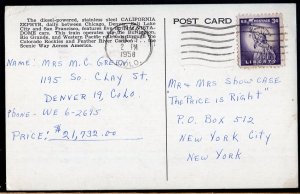 The diesel-powered, stainless steel CALIFORNIA
ZEPHYR, daily between Chicago, Salt Lake
City and San Francisco, features five VISTA-
DOME cars. This train operates via the Burlington,
Rio Grande, and Western Pacific
Colorado Rockies and Feather River Canyon
Scenic Way Across America.
POST CARD
2
PM
1958
COLO.
3¢
LIBERTY
NAME: MRS M. C.
1195 So. CLAY ST,
DENVER 19, COLO.
PHONE: WE 6-2695
PRICE: $21,732.00
MR & MRS SHOWCASE
"THE PRICE IS RIGHT"
P.O. BOX 512
NEW YORK CITY
NEW YORK